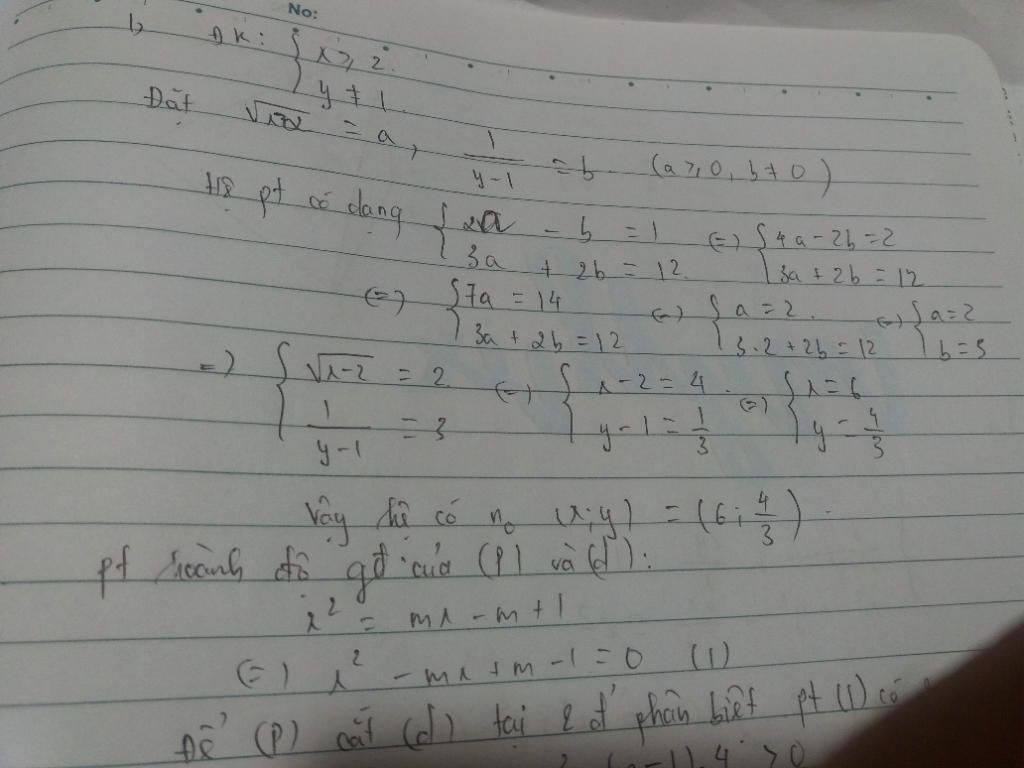 No:
1, ĐK: { x ≥ 2
y ≠ 1
Đặt √x-2 = a, 1/(y-1) = b (a ≥ 0, b ≠ 0)
Hệ pt có dạng { 2a - b = 1 (=) { 4a - 2b = 2
3a + 2b = 12 3a + 2b = 12
(=) { 7a = 14 (=) { a = 2 (=) { a = 2
3a + 2b = 12 3.2 + 2b = 12 b = 3
=) { √x-2 = 2 (=) { x - 2 = 4 (=) { x = 6
1/(y-1) = 3 y - 1 = 1/3 y = 4/3
Vậy hệ có n0 (x;y) = (6; 4/3)
pt hoành độ gđ của (P) và (d):
x² = mx - m + 1
(=) x² - mx + m - 1 = 0 (1)
Để (P) cắt (d) tại 2 đ' phân biệt pt (1) có
-1).4 > 0